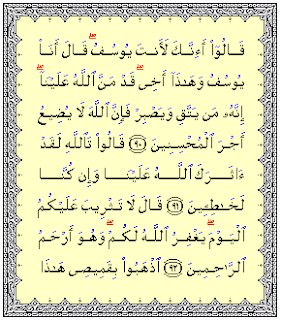 قَالُوٓا۟ أَءِنَّكَ لَأَنتَ يُوسُفُ ۖ قَالَ أَنَا۠
يُوسُفُ وَهَٰذَآ أَخِى ۖ قَدْ مَنَّ ٱللَّهُ عَلَيْنَآ ۖ
إِنَّهُۥ مَن يَتَّقِ وَيَصْبِرْ فَإِنَّ ٱللَّهَ لَا يُضِيعُ
أَجْرَ ٱلْمُحْسِنِينَ ﴿٩٠﴾ قَالُوا۟ تَٱللَّهِ لَقَدْ
ءَاثَرَكَ ٱللَّهُ عَلَيْنَا وَإِن كُنَّا
لَخَٰطِـِٔينَ ﴿٩١﴾ قَالَ لَا تَثْرِيبَ عَلَيْكُمُ
ٱلْيَوْمَ ۖ يَغْفِرُ ٱللَّهُ لَكُمْ ۖ وَهُوَ أَرْحَمُ
ٱلرَّٰحِمِينَ ﴿٩٢﴾ ٱذْهَبُوا۟ بِقَمِيصِى هَٰذَا